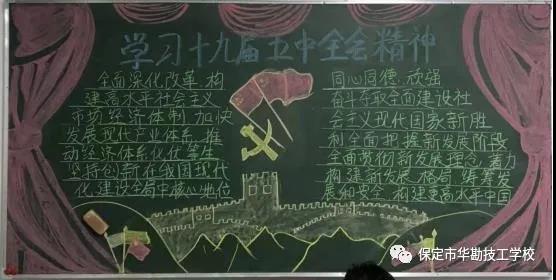 学习十九届五中全会精神
全面深化改革,构
建高水平社会主义
市场经济体制,加快
发展现代产业体系,推
动经济体系优化
坚持创新在我国现代
化建设全局中核心地位
同心同德,顽强
奋斗夺取全面建设社
会主义现代国家新胜
利全面把握新发展阶段
全面贯彻新发展理念,着力
构建新发展格局,统筹发
展和安全,构建更高水平中国
保定市华勘技工学校